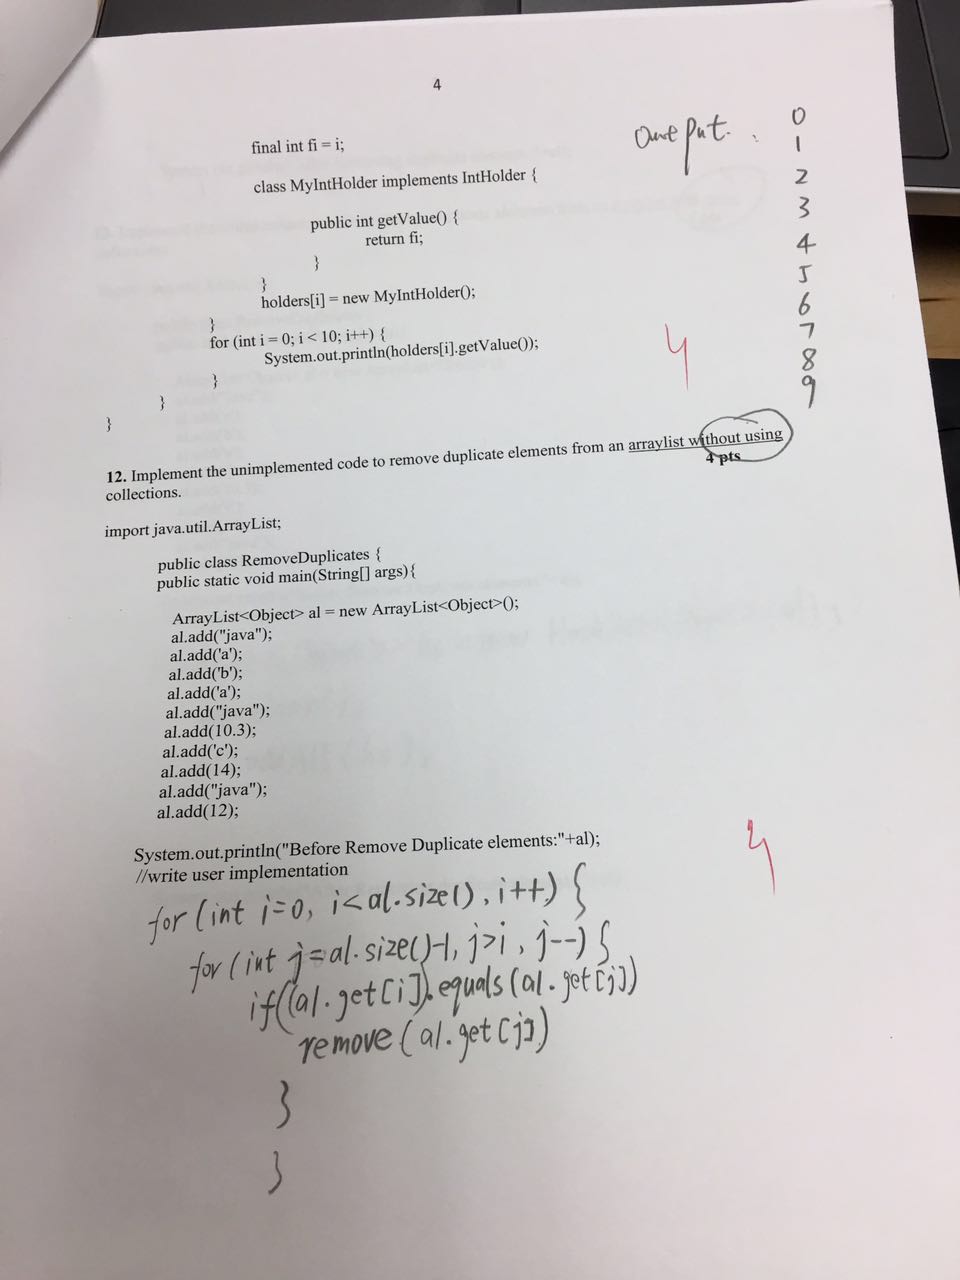 4
final int fi = i;
class MyIntHolder implements IntHolder {
public int getValue() {
return fi;
}
}
holders[i] = new MyIntHolder();
}
for (int i = 0; i < 10; i++) {
System.out.println(holders[i].getValue());
}
}
}
output.
0
1
2
3
4
5
6
7
8
9
4
12. Implement the unimplemented code to remove duplicate elements from an arraylist without using
collections.
4 pts
import java.util.ArrayList;
public class RemoveDuplicates {
public static void main(String[] args){
ArrayList<Object> al = new ArrayList<Object>();
al.add("java");
al.add('a');
al.add('b');
al.add('a');
al.add("java");
al.add(10.3);
al.add('c');
al.add(14);
al.add("java");
al.add(12);
System.out.println("Before Remove Duplicate elements:"+al);
//write user implementation
4
for (int i=0, i<al.size(), i++) {
for (int j=al.size()-1, j>i, j--) {
if((al.get[i]).equals(al.get[j])
remove(al.get[j])
}
}